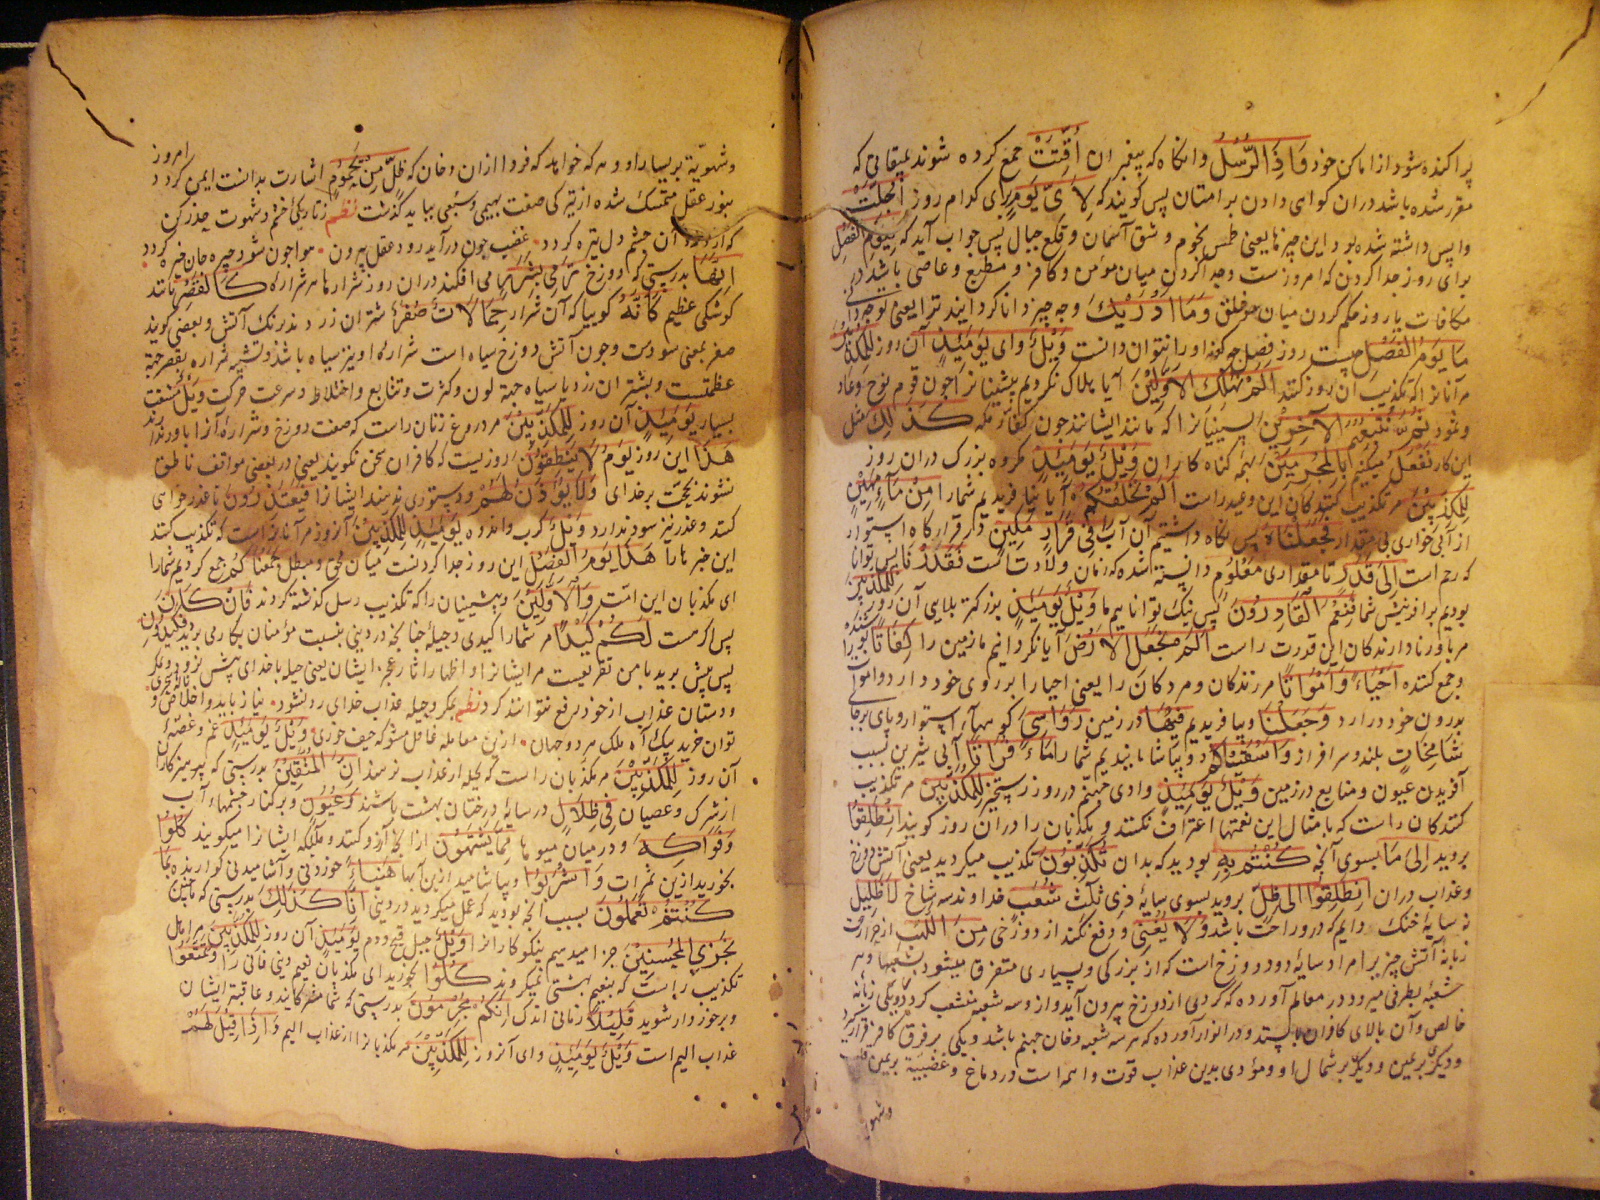 پراکنده شود از اماکن خود وَاِذَا الرُّسُلُ وانگاه که پیغمبران اُقِّتَتْ جمع کرده شوند بمیقاتی که
مقرر شده باشد دران گواهی دادن بر امتان پس گویند که لِاَیِّ یَوْمٍ برای کدام روز اُجِّلَتْ
واپس داشته شده بود این چیزها یعنی طمس نجوم و شق آسمان و قلع جبال پس جواب آید که لِیَوْمِ الْفَصْلِ
برای روز جدا کردن که امروزست وجدا کردن میان مؤمن و کافر و مطیع و عاصی باشد
مکافات یا روز حکم کردن میان خلق وَمَا اَدْرٰیكَ و چه چیز دانا کردانید ترا یعنی تو چه دانی
مَا یَوْمُ الْفَصْلِ چیست روز فصل چه کنه او را نتوان دانست وَیْلٌ وای یَوْمَئِذٍ آن روز لِلْمُكَذِّبِیْنَ
مر آنانرا که تکذیب آن روز کنند اَلَمْ نُهْلِكِ الْاَوَّلِیْنَ آیا هلاک نکردیم پیشینیانرا چون قوم نوح و عاد
و ثمود ثُمَّ نُتْبِعُهُمُ الْاٰخِرِیْنَ پسینیانرا که مانند ایشانند چون کفار مکه كَذٰلِكَ مثل
این کار نَفْعَلُ میکنیم بِالْمُجْرِمِیْنَ بهمه گناه کاران وَیْلٌ یَوْمَئِذٍ مکروه بزرگ دران روز
لِلْمُكَذِّبِیْنَ مر تکذیب کنندگان این وعید راست اَلَمْ نَخْلُقْكُمْ آیا نیافریدیم شما را مِنْ مَاءٍ مَهِیْنٍ
از آبی خواری بی مقدار فَجَعَلْنَاهُ پس نگاه داشتیم آن آب را فِیْ قَرَارٍ مَكِیْنٍ در قرارگاه استوار
که رحم است اِلٰی قَدَرٍ تا مقداری مَعْلُوْمٍ دانسته شده که زمان ولادتست فَقَدَرْنَا پس توانا
بودیم بر آفرینش شما فَنِعْمَ الْقَادِرُوْنَ پس نیک توانائیم ما وَیْلٌ یَوْمَئِذٍ بزرگتر بلای آن روز لِلْمُكَذِّبِیْنَ
مر باور ندارندگان این قدرت راست اَلَمْ نَجْعَلِ الْاَرْضَ آیا نکردانیم ما زمین را كِفَاتًا
و جمع کننده اَحْیَاءً وَاَمْوَاتًا مر زندگان و مردگان را یعنی احیا را بر روی خود دارد و اموات را
بدرون خود درآرد وَجَعَلْنَا وبیافریدیم فِیْهَا در زمین رَوَاسِیَ کوههای استوار و پای برجا
شَامِخَاتٍ بلند و سرافراز وَاَسْقَیْنَاكُمْ و بیاشامانیدیم شما را مَاءً فُرَاتًا آبی شیرین بسبب
آفریدن عیون و منابع در زمین وَیْلٌ یَوْمَئِذٍ وادی جهنم در روز رستخیز لِلْمُكَذِّبِیْنَ مر تکذیب
کنندگان راست که بامثال این نعمتها اعتراف نکنند و مکذبان را دران روز گویند اِنْطَلِقُوْا
بروید اِلٰی مَا بسوی آنچه كُنْتُمْ بِهٖ بودید که بدان تُكَذِّبُوْنَ تکذیب میکردید یعنی آتش دوزخ
و عذاب دران اِنْطَلِقُوْا اِلٰی ظِلٍّ بروید بسوی سایهٔ ذِیْ ثَلٰثِ شُعَبٍ خداوند سه شاخ لَا ظَلِیْلٍ
نه سایهٔ خنک و دایم که درو راحت باشد وَلَا یُغْنِیْ و دفع نکند از دوزخی مِنَ اللَّهَبِ از حرارت
زبانهٔ آتش چیزیرا مراد سایهٔ دود دوزخ است که از بزرگی و بسیاری متفرق میشود بشعبها و هر
شعبهٔ بطرفی میرود در معالم آورده که گردی از دوزخ بیرون آید و از وسه شعبه منشعب گردد یکی زبانه
خالص و آن بالای کافران بایستد و در انوار آورده که هر سه شعبه دخان جهنم باشد و یکی بر فرق کافر قرار گیرد
و دیگر بر یمین و دیگر بر شمال او و مؤدی بدین عذاب قوت واهمه است در دماغ و غضبیه بر یمین قلب
وشهو
وشهویة بر یسار او و هر که خواهد که فردا ازان دخان که ظِلٍّ مِنْ یَحْمُوْمٍ اشارت بدانست ایمن گردد امروز
بنور عقل متمسک شده از تیرگی صفت بهیمی و سبعی بباید گذشت نظم ز تاریکی خشم و شهوت حذر کن
که از دود آن چشم دل تیره گردد غضب چون درآید رود عقل بیرون هوا چون شود چیره جان خیره گردد
اِنَّهَا بدرستی که دوزخ تَرْمِیْ بِشَرَرٍ می افکند دران روز شرارها هر شراره كَالْقَصْرِ مانند
کوشکی عظیم كَاَنَّهٗ گوییا که آن شرار جِمَالَاتٌ صُفْرٌ شتران زردند رنگ آتش و بعضی گویند
صفر بمعنی سودست و چون آتش دوزخ سیاه است شرارهٔ او نیز سیاه باشد و تشبیه شراره بقصر جهة
عظمتست و بشتران زرد یا سیاه جهة لون و کثرت و تتابع و اختلاط و سرعت حرکت وَیْلٌ مشقت
بسیار یَوْمَئِذٍ آن روز لِلْمُكَذِّبِیْنَ مر دروغ زنان راست که صفت دوزخ و شرارهٔ آنرا باور ندارند
هٰذَا این روز یَوْمُ لَا یَنْطِقُوْنَ روزیست که کافران سخن نگویند یعنی در بعضی مواقف ناطق
نشوند بحجت بر خدای وَلَا یُؤْذَنُ لَهُمْ و دستوری ندهند ایشانرا فَیَعْتَذِرُوْنَ تا عذرخواهی
کنند و عذر نیز سود ندارد وَیْلٌ کرب و اندوه یَوْمَئِذٍ لِلْمُكَذِّبِیْنَ آنروز مر آنانراست که تکذیب کنند
این خبرها را هٰذَا یَوْمُ الْفَصْلِ این روز جدا کردنست میان محق و مبطل جَمَعْنَاكُمْ جمع کردیم شما را
ای مکذبان این امت وَالْاَوَّلِیْنَ و پیشینیان را که تکذیب رسل گذشته کردند فَاِنْ كَانَ
پس اگر هست لَكُمْ كَیْدٌ مر شما را کیدی و حیلهٔ چنانچه در دنیا بنسبت مؤمنان بکار می بردید فَكِیْدُوْنِ
پس پیش برید با من تقریعیست مر ایشانرا و اظهار آثار عجز ایشان یعنی حیله با خدای پیش نرود و بمکر
و دستان عذاب از خود دفع نتوانند کرد نظم بمکر و حیله عذاب خدای رد نشود نیاز باید و اخلاص و
توان خرید بیک آه ملک هر دو جهان ازین معامله غافل مشو که حیف خوری وَیْلٌ یَوْمَئِذٍ غم و غصهٔ
آن روز لِلْمُكَذِّبِیْنَ مر مکذبان را ست که بحیله از عذاب نرهند اِنَّ الْمُتَّقِیْنَ بدرستی که پرهیزکاران
از شرک و عصیان فِیْ ظِلَالٍ در سایهٔ درختان بهشت باشند وَعُیُوْنٍ و بر کنار چشمهای آب
وَفَوَاكِهَ و در میان میوها مِمَّا یَشْتَهُوْنَ از آنچه آرزو کنند و ملائکه ایشانرا میگویند كُلُوْا
بخورید ازین ثمرات وَاشْرَبُوْا و بیاشامید ازین آبها هَنِیْئًا خوردنی و آشامیدنی گوارنده بِمَا
كُنْتُمْ تَعْمَلُوْنَ بسبب آنچه بودید که عمل میکردید در دنیا اِنَّا كَذٰلِكَ بدرستی که ما چنین
نَجْزِی الْمُحْسِنِیْنَ جزا میدهیم نیکوکارانرا وَیْلٌ یَوْمَئِذٍ آن روز لِلْمُكَذِّبِیْنَ مر اهل
تکذیب راست که بنعیم بهشتی نمیگروند كُلُوْا بخورید ای مکذبان نعیم دنیای فانی را وَتَمَتَّعُوْا
و برخوردار شوید قَلِیْلًا زمانی اندک اِنَّكُمْ مُجْرِمُوْنَ بدرستی که شما مشرکانید و عاقبة ایشان
عذاب الیم است وَیْلٌ یَوْمَئِذٍ وای آنروز لِلْمُكَذِّبِیْنَ مر مکذبانرا از عذاب الیم وَاِذَا قِیْلَ لَهُمْ